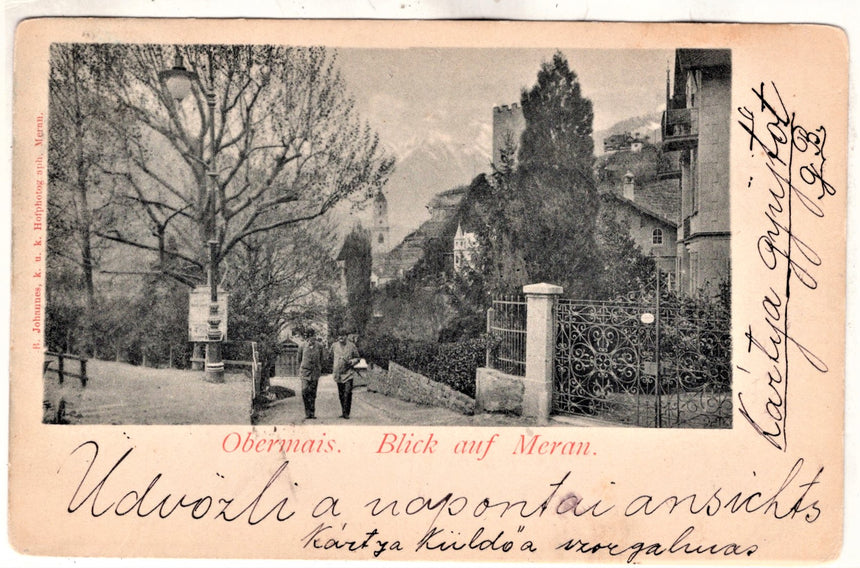 B. Johannes, k. u. k. Hofphotograph, Meran.
Obermais. Blick auf Meran.
Üdvözli a napontai ansichts
Kártya Küldőa szorgalmas
Kártya gyűjtőt
G. B.